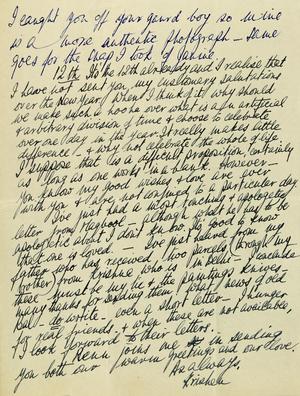 I caught you off your guard boy so mine
is a more authentic photograph – same
goes for the snap I took of Janine.
12th. It's the 12th already and I realise that
I have not sent you my customary salutations
over the New Year. When I think of it why should
we make such a hooha over what is a/n artificial
& arbitrary division of time & choose to celebrate
over one day in the year. It really makes little
difference – & why not celebrate the whole of life
I suppose that is a difficult proposition (certainly
as long as one works in a bank. However –
You know my good wishes & love are ever
with you & are not confined to a particular day.
I've just had a most touching & apologetic
letter from – although what he has to be
apologetic about I don't know. So good to know
that one is loved – I've just heard from my
father who has received two parcels (through my
brother) from Krishna who is in – I conclude
these must be my & the paintings knives –
many thanks for sending them. What news of old
to write – even a short letter – I hunger
for real friends, & when these are not available,
I look forward to their letters.
joins me in sending
you both our warm greetings and our love.
As always,